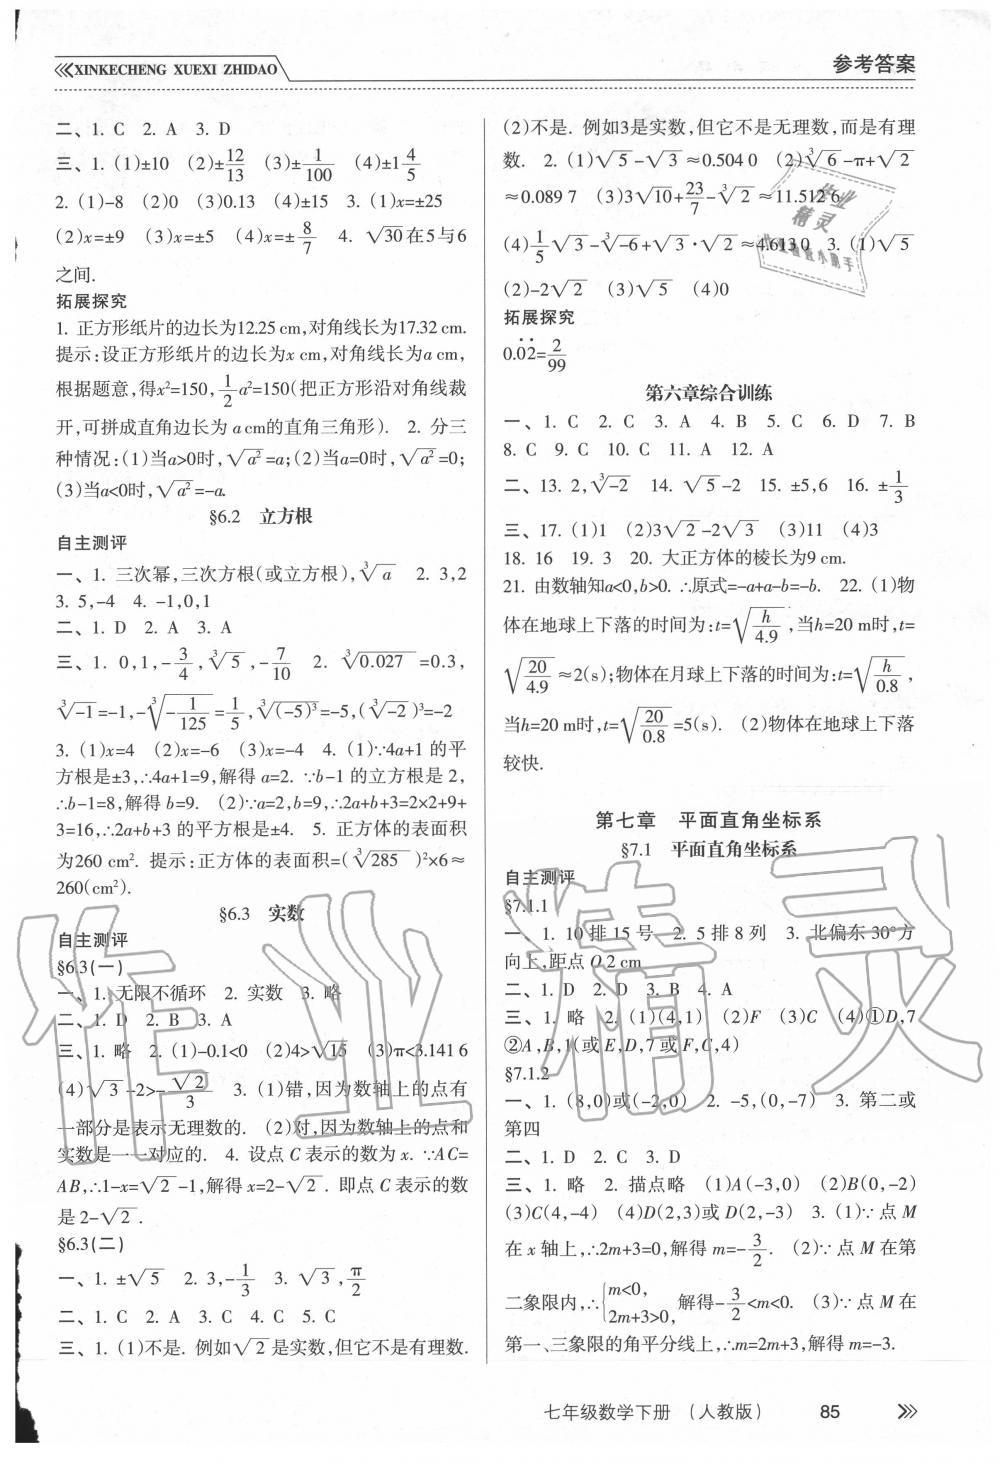 XINKECHENG XUEXI ZHIDAO
参考答案
二、1. C 2. A 3. D
三、1. (1)±10 (2)±12/13 (3)±1/100 (4)±1 4/5
2. (1)-8 (2)0 (3)0.13 (4)±15 3. (1)x=±25
(2)x=±9 (3)x=±5 (4)x=±8/7 4. √30在5与6
之间.
拓展探究
1. 正方形纸片的边长为12.25 cm,对角线长为17.32 cm.
提示:设正方形纸片的边长为x cm,对角线长为a cm,
根据题意,得x²=150, 1/2 a²=150(把正方形沿对角线裁
开,可拼成直角边长为 a cm的直角三角形). 2. 分三
种情况:(1)当a>0时,√a²=a;(2)当a=0时,√a²=0;
(3)当a<0时,√a²=-a.
§6.2 立方根
自主测评
一、1. 三次幂,三次方根(或立方根),∛a 2. 3,2
3. 5,-4 4. -1,0,1
二、1. D 2. A 3. A
三、1. 0,1,-3/4,∛5,-7/10 2. ∛0.027=0.3,
∛-1=-1,-∛(-1/125)=1/5,∛(-5)³=-5,(∛-2)³=-2
3. (1)x=4 (2)x=-6 (3)x=-4 4. (1)∵4a+1 的平
方根是±3,∴4a+1=9,解得 a=2. ∵b-1 的立方根是 2,
∴b-1=8,解得 b=9. (2)∵a=2,b=9,∴2a+b+3=2×2+9+
3=16,∴2a+b+3 的平方根是±4. 5. 正方体的表面积
为260 cm². 提示:正方体的表面积=(∛285)²×6≈
260(cm²).
§6.3 实数
自主测评
§6.3(一)
一、1. 无限不循环 2. 实数 3. 略
二、1. D 2. B 3. A
三、1. 略 2. (1)-0.1<0 (2)4>√15 (3)π<3.141 6
(4)√3-2>-√2/3 3. (1)错,因为数轴上的点有
一部分是表示无理数的. (2)对,因为数轴上的点和
实数是一一对应的. 4. 设点 C 表示的数为 x. ∵AC=
AB,∴1-x=√2-1,解得 x=2-√2. 即点 C 表示的数
是 2-√2.
§6.3(二)
一、1. ±√5 2. 3,-1/3 3. √3,π/2
二、1. C 2. A 3. C 4. C 5. C
三、1. (1)不是. 例如√2是实数,但它不是有理数.
(2)不是. 例如3是实数,但它不是无理数,而是有理
数. 2. (1)√5-√3≈0.504 0 (2)∛6-π+√2
≈0.089 7 (3)3√10+23/7-∛2≈11.512 6
(4)1/5√3-∛-6+√3·√2≈4.613 0 3. (1)√5
(2)-2√2 (3)√5 (4)0
拓展探究
0.0̇2̇=2/99
第六章综合训练
一、1. C 2. C 3. A 4. B 5. C 6. D 7. B
8. C 9. C 10. C 11. A 12. A
二、13. 2,∛-2 14. √5-2 15. ±5,6 16. ±1/3
三、17. (1)1 (2)3√2-2√3 (3)11 (4)3
18. 16 19. 3 20. 大正方体的棱长为9 cm.
21. 由数轴知a<0,b>0. ∴原式=-a+a-b=-b. 22. (1)物
体在地球上下落的时间为:t=√(h/4.9),当h=20 m时,t=
√(20/4.9)≈2(s);物体在月球上下落的时间为:t=√(h/0.8),
当h=20 m时,t=√(20/0.8)=5(s). (2)物体在地球上下落
较快.
第七章 平面直角坐标系
§7.1 平面直角坐标系
自主测评
§7.1.1
一、1. 10 排 15 号 2. 5 排 8 列 3. 北偏东 30°方
向上,距点 O 2 cm
二、1. D 2. D 3. B 4. A
三、1. 略 2. (1)(4,1) (2)F (3)C (4)①D,7
②A,B,1(或 E,D,7 或 F,C,4)
§7.1.2
一、1. (8,0)或(-2,0) 2. -5,(0,-7) 3. 第二或
第四
二、1. D 2. C 3. D
三、1. 略 2. 描点略 (1)A(-3,0) (2)B(0,-2)
(3)C(4,-4) (4)D(2,3)或 D(2,-3) 3. (1)∵点 M
在 x 轴上,∴2m+3=0,解得 m=-3/2. (2)∵点 M 在第
二象限内,∴{m<0, 2m+3>0, 解得-3/2<m<0. (3)∵点 M 在
第一、三象限的角平分线上,∴m=2m+3,解得 m=-3.
七年级数学下册 (人教版) 85
作业精灵
作业
精灵